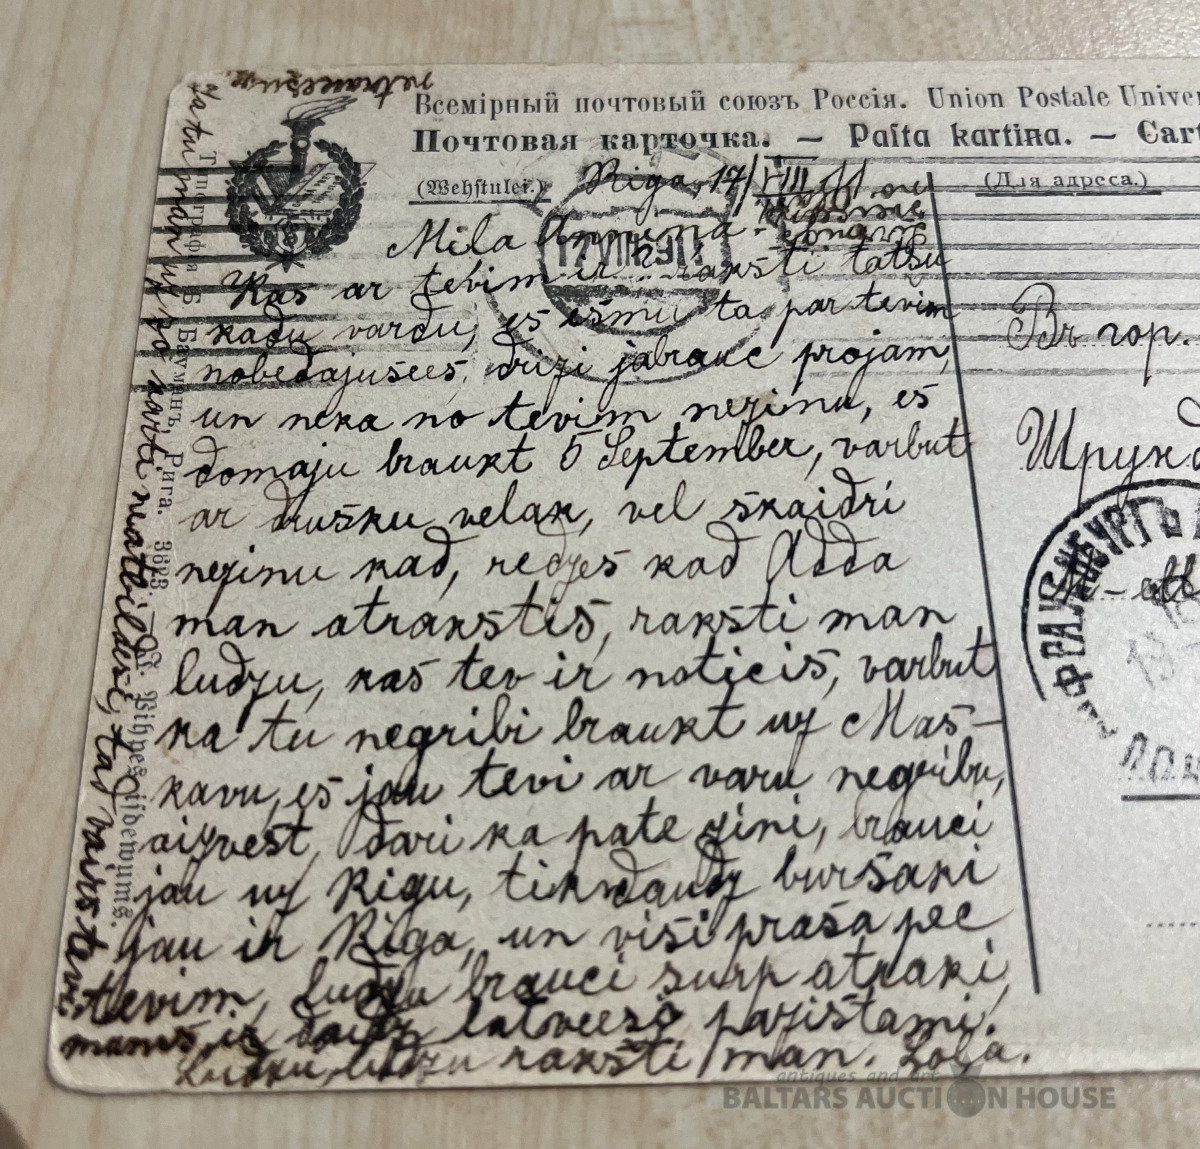 Всемірный почтовый союзъ Россія. Union Postale Univer
Почтовая карточка. — Pasta kartina. — Cart
(Wehstulei.)
(Для адреса.)
Riga, 17/VIII
17 VIII 1911
Mila Annina
Kas ar tevim ir? raksti tatšu
kadu vardu, es išmu ta par tevim
nobedajusees, drizi jabrauc projam,
un neka no tevim nezinu, es
domaju braukt 5 September, varbut
ar drušku velak, vel skaidri
nezinu kad, redzes kad Adda
man atrakstis, raksti man
ludzu, kas tev ir noticis, varbut
ka tu negribi braukt uz Mas-
kavu, es jau tevi ar varu negribu,
aizvest, dari ka pate zini, brauci
jau uz Rigu, tik daudz buršaki
jau ir Riga, un visi prasa pec
tevim, ludzu brauci surp atraki,
ir daudz latveesi pazistami.
ludzu raksti man. Lola.
Ja tu man uz šo karti neatbildesi, tad vairs tevi
netraucešu
Типографія Б. Бауманъ, Рига. 3623
Въ гор.
ФРАУЕНБУРГЪ